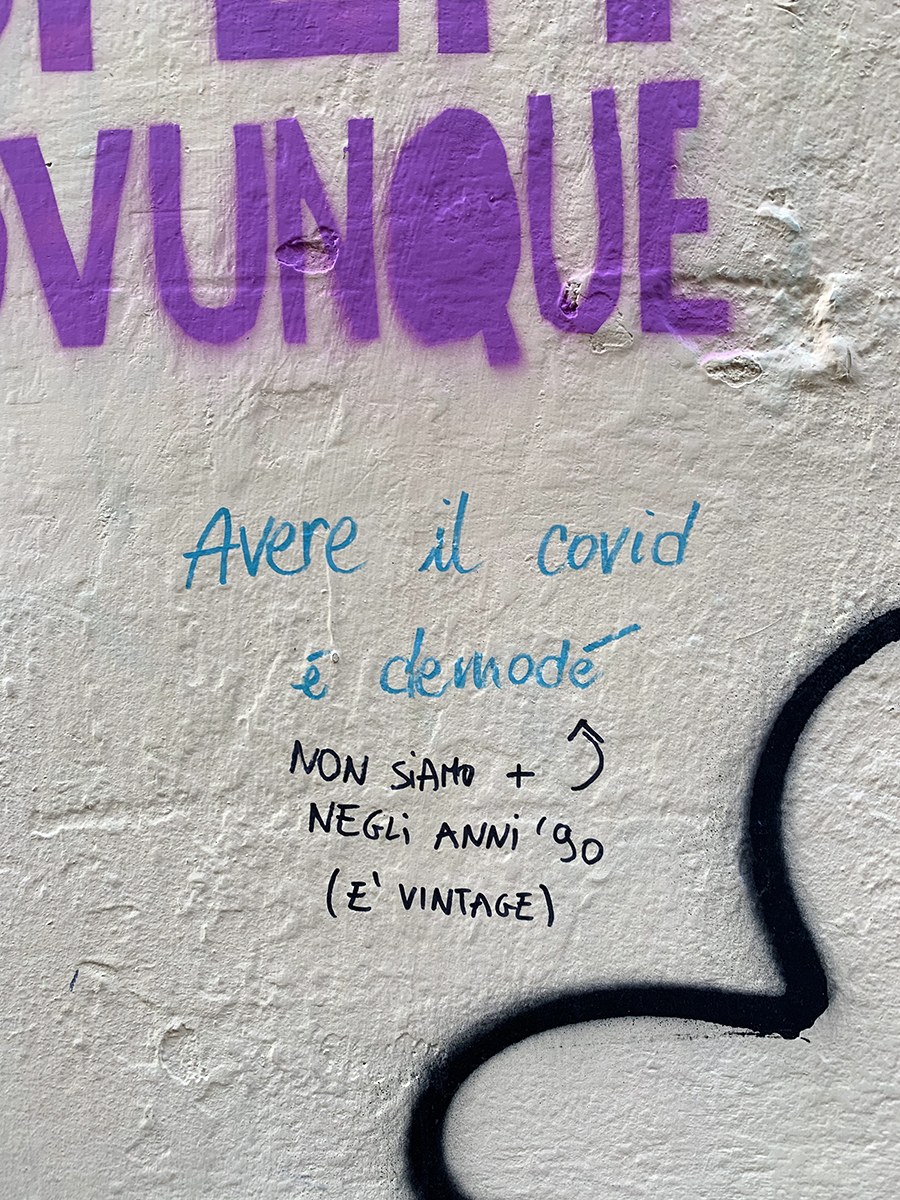 OVUNQUE
Avere il covid
é demodé
NON SiAMO +
NEGLi ANNi '90
(E' VINTAGE)